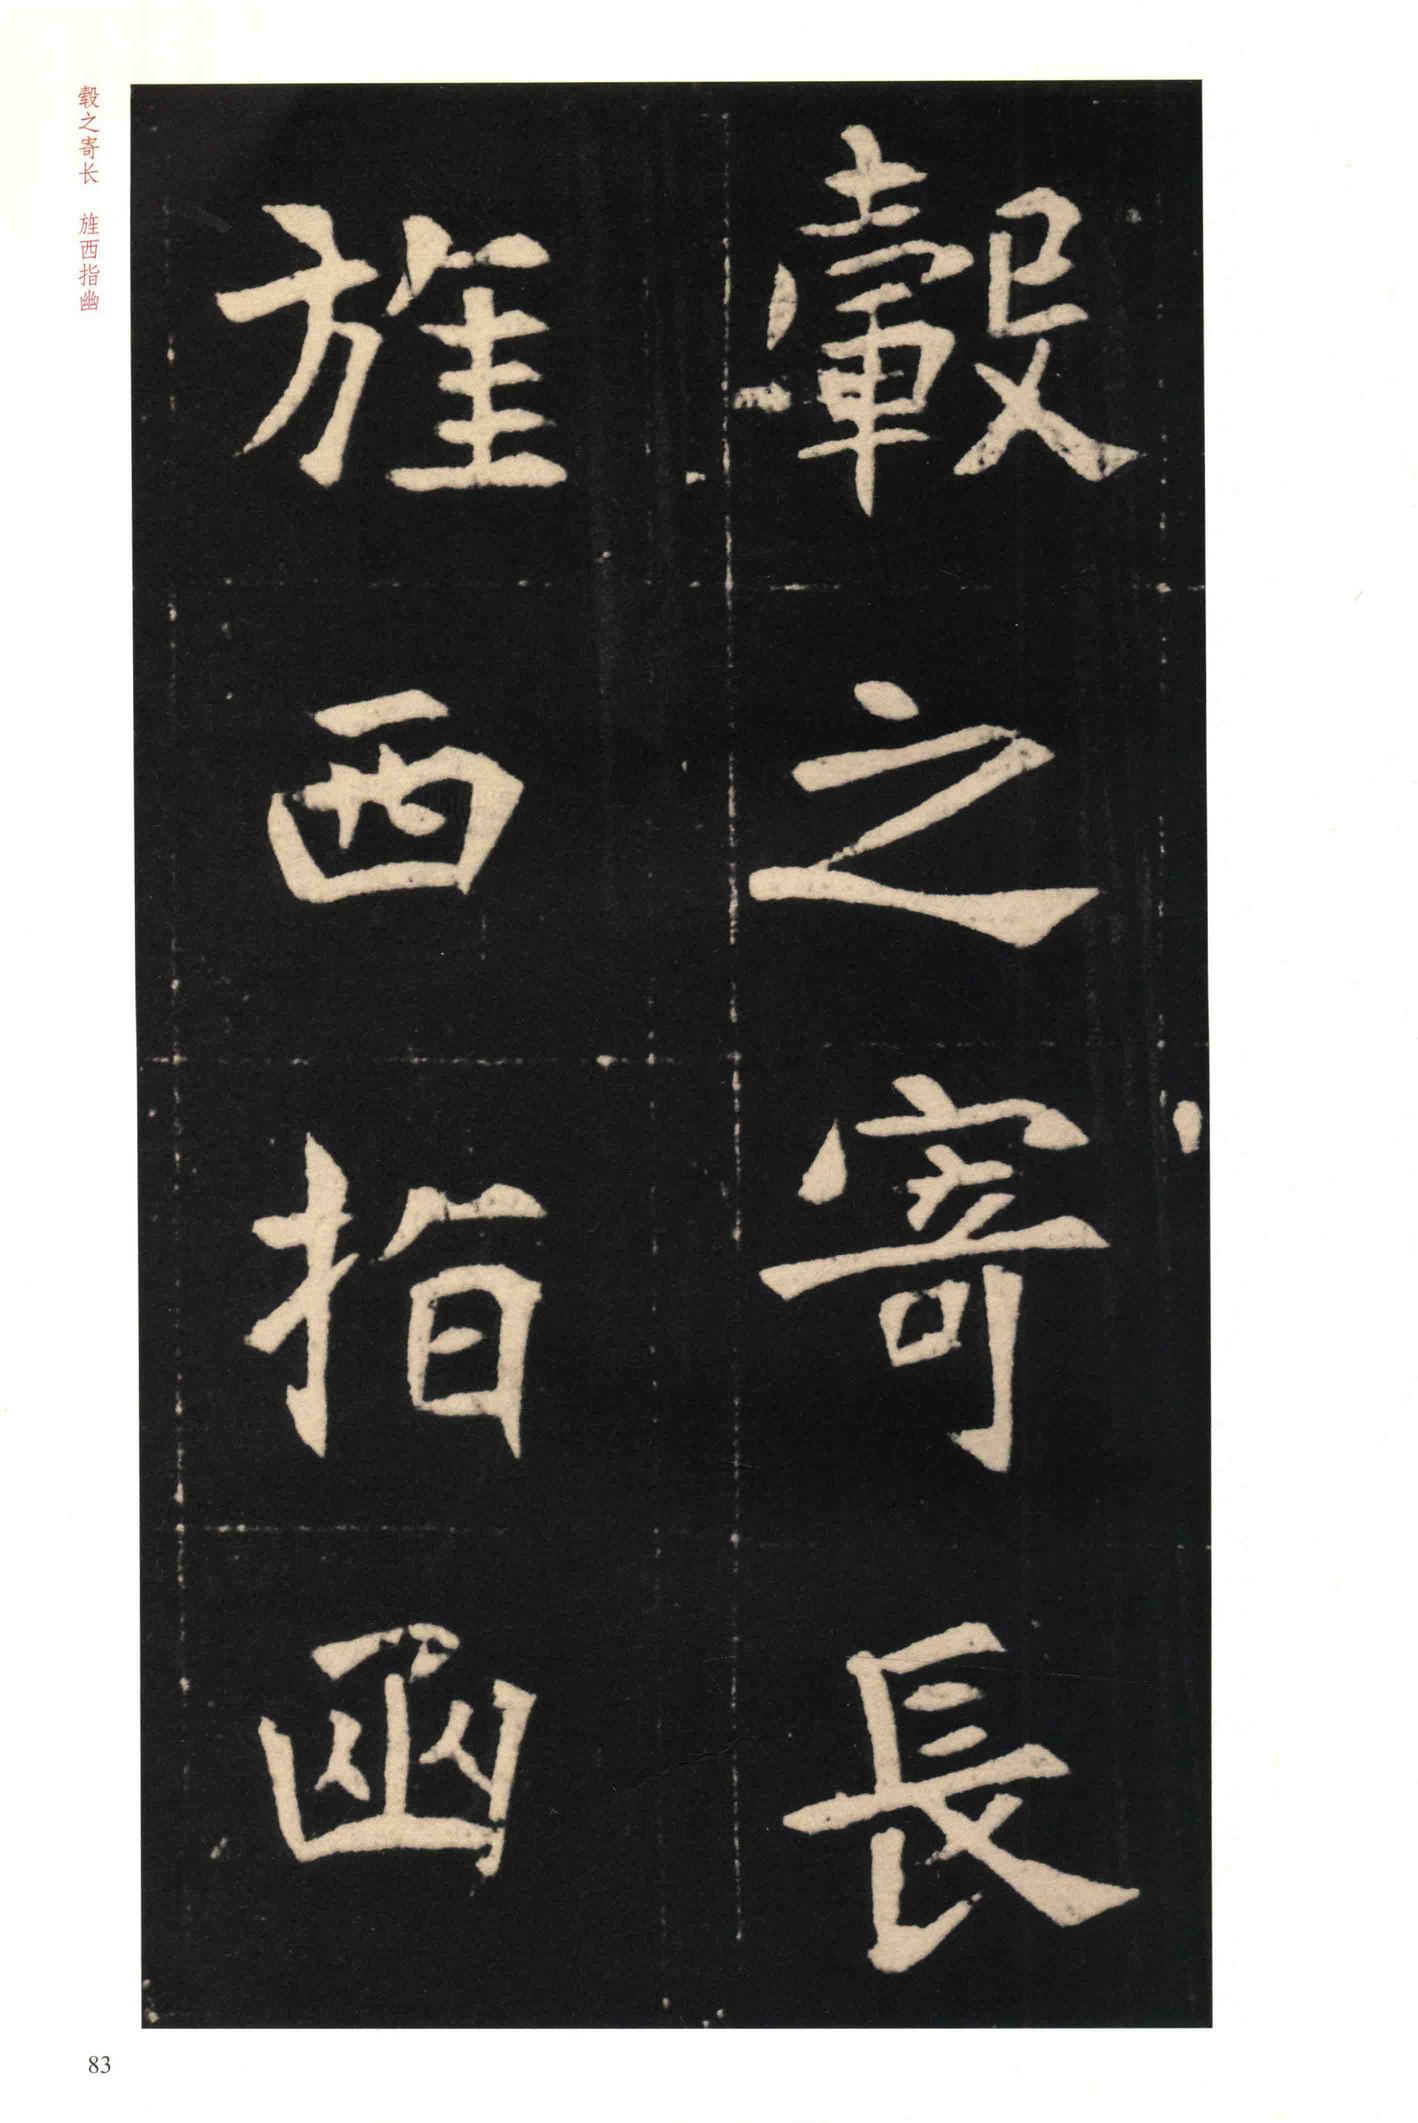 轂之寄長
旌西指函
毂之寄长 旌西指幽
83